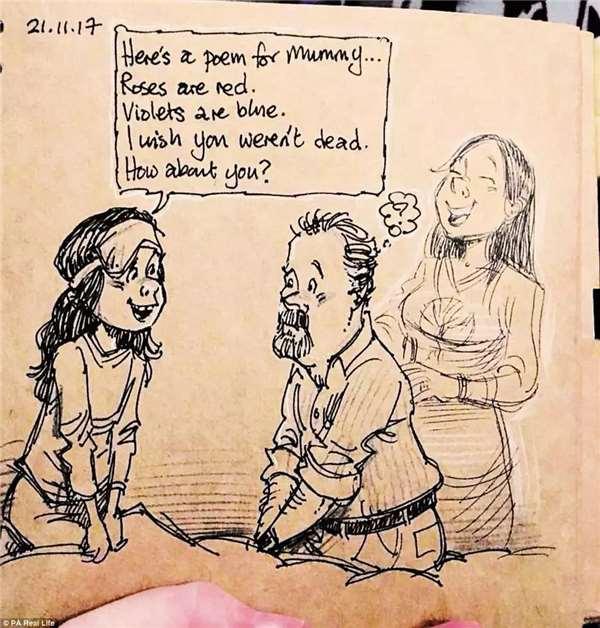 21.11.17
Here's a poem for Mummy...
Roses are red.
Violets are blue.
I wish you weren't dead.
How about you?
?
© PA Real Life